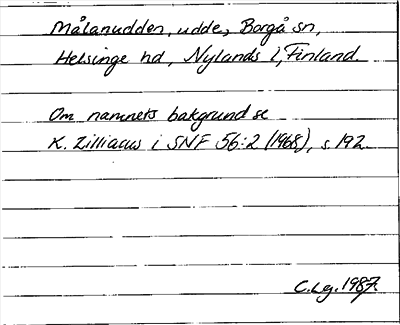 Målanudden, udde, Borgå sn,
Helsinge hd, Nylands l, Finland.
Om namnets bakgrund se
K. Zilliacus i SNF 56:2 (1968), s. 192.
C. Lg. 1987.